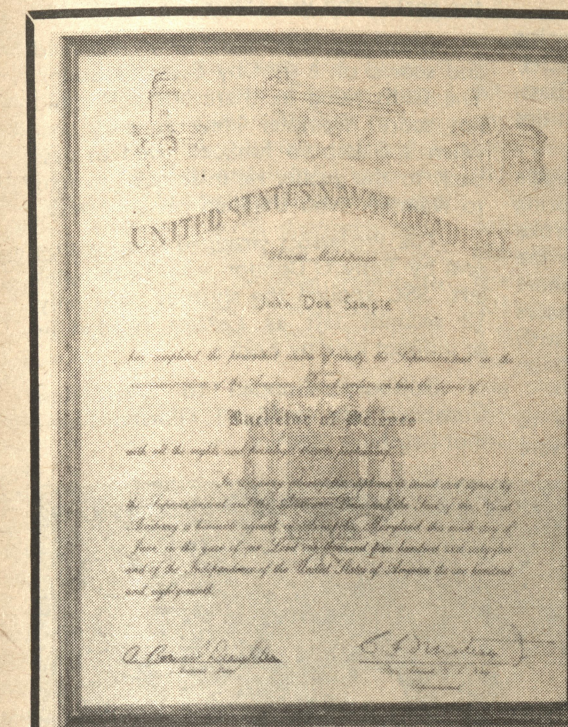 UNITED STATES NAVAL ACADEMY
Whereas Midshipman
John Doe Sample
has completed the prescribed course of study, the Superintendent on the
recommendation of the Academic Board confers on him the degree of
Bachelor of Science
with all the rights and privileges thereto pertaining.
In testimony whereof this diploma is issued and signed by
the Superintendent and the Academic Dean and the Seal of the Naval
Academy is hereunto affixed, at Annapolis, Maryland, this day of
June in the year of our Lord one thousand nine hundred and
and of the Independence of the United States of America the one hundred
and eighty
Academic Dean
Superintendent